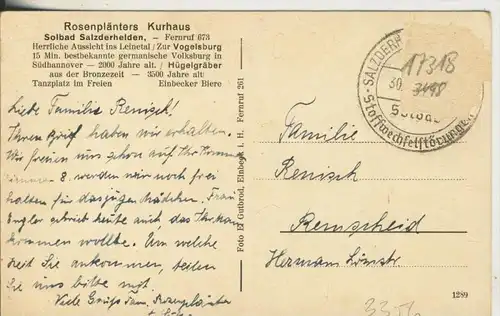 Rosenplänters Kurhaus
Solbad Salzderhelden, – Fernruf 673
Herrliche Aussicht ins Leinetal / Zur Vogelsburg
15 Min. bestbekannte germanische Volksburg in
Südhannover — 2000 Jahre alt. / Hügelgräber
aus der Bronzezeit — 3500 Jahre alt
Tanzplatz im Freien Einbecker Biere
Liebe Familie Renisch!
Ihren Brief haben wir erhalten.
Wir freuen uns schon auf Ihr
8. werden wir noch frei
halten für das Mädchen. Frau
Engler schrieb heute auch, das Ihr
kommen wollte. Um welche
Zeit Sie ankommen, teilen
Sie uns bitte mit.
Viele Grüße Fam. Rosenplänter
Foto El Guthrod, Einbeck i. H. Fernruf 261
SALZDERH
30.
Solba
Stoffwechselstörungen
17318
3498
Familie
Renisch
Remscheid
Hermann Lönsstr.
1289